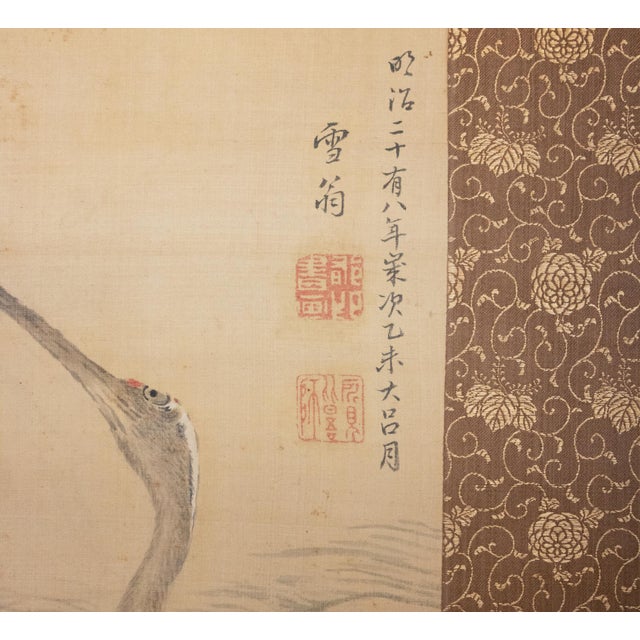 明治二十有八年嵗次乙未大呂月
雪翁